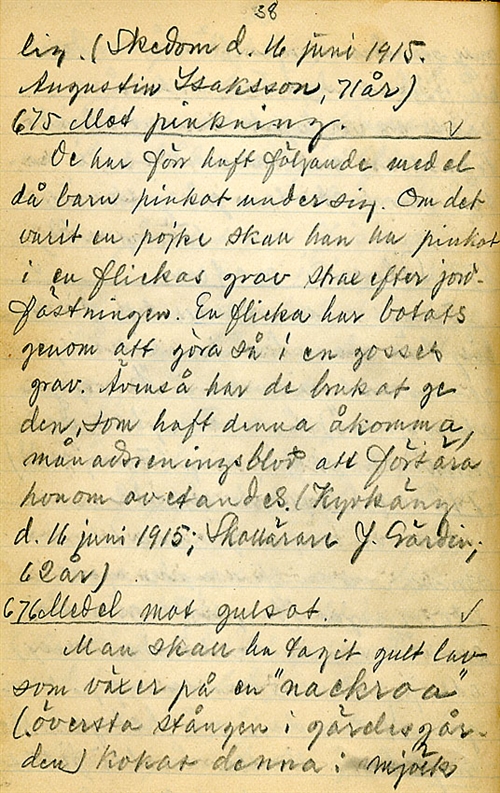 38
lig. (Skedom d. 16 juni 1915.
Augustin Isaksson, 71 år)
675 Mot pinkning. ✓
De har förr haft följande medel
då barn pinkat under sig. Om det
varit en pojke skall han ha pinkat
i en flickas grav strax efter jord-
fästningen. En flicka har botats
genom att göra så i en gosses
grav. Ävenså har de brukat ge
den, som haft denna åkomma,
månadsreningsblod att förtära
honom ovetandes. (Kyrkäng
d. 16 juni 1915; Skollärare J. Gärdin,
62 år)
676 Medel mot gulsot. ✓
Man skall ha tagit gult lav
som växer på en "nackroa"
(översta stången i gärdesgår-
den) kokat denna i mjölk